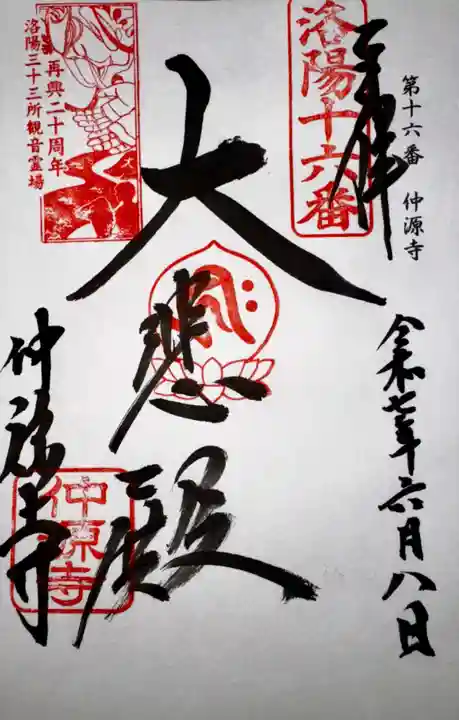 第十六番 仲源寺
奉拝
令和七年六月八日
洛陽十六番
大悲殿
再興二十周年
洛陽三十三所観音霊場
仲源寺
仲源寺